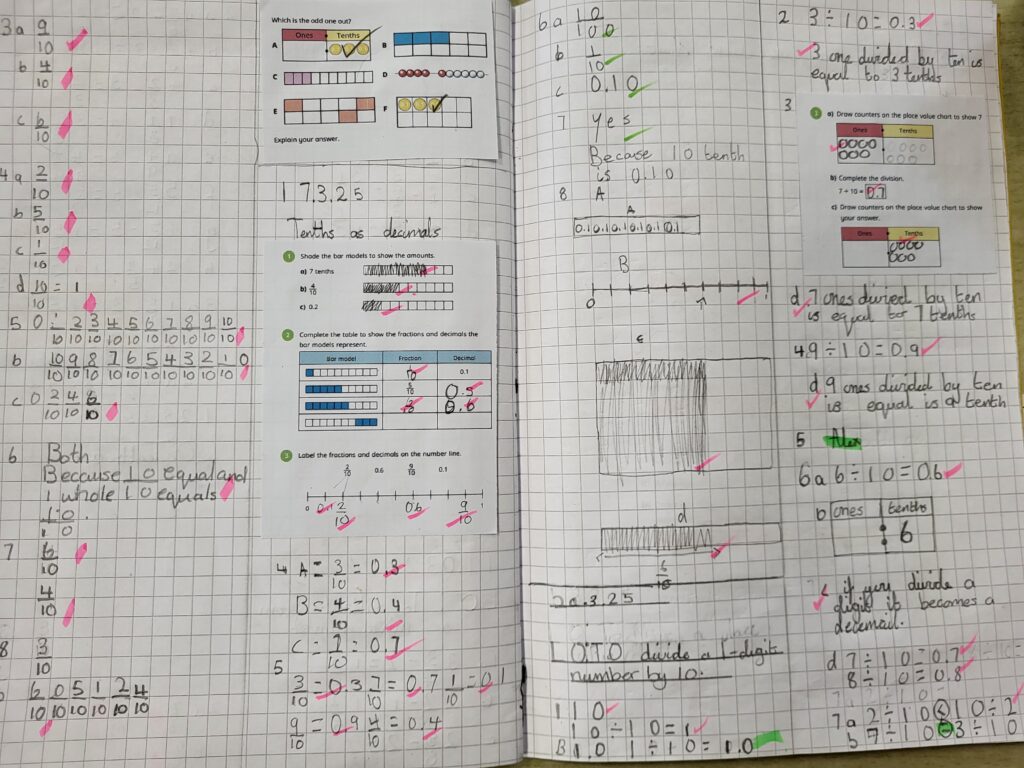 3a 9/10
b 4/10
c 6/10
4a 2/10
b 5/10
c 1/10
d 10/10 = 1
5 0 1/10 2/10 3/10 4/10 5/10 6/10 7/10 8/10 9/10 10/10
b 10/10 9/10 8/10 7/10 6/10 5/10 4/10 3/10 2/10 1/10 0
c 0 2/10 4/10 6/10
6 Both
Because 10 equal and
1 whole 10 equals
10/10
7 6/10
4/10
8 3/10
6/10 0/10 5/10 1/10 2/10 4/10
Which is the odd one out?
A Ones Tenths
B
C
D
E
F
Explain your answer.
17.3.25
Tenths as decimals
1 Shade the bar models to show the amounts.
a) 7 tenths
b) 4/10
c) 0.2
2 Complete the table to show the fractions and decimals the
bar models represent.
Bar model Fraction Decimal
1/10 0.1
5/10 0.5
0.6
3 Label the fractions and decimals on the number line.
2/10 0.6 9/10 0.1
0 0.1 2/10 0.6 9/10 1
4 A = 3/10 = 0.3
B = 4/10 = 0.4
C = 7/10 = 0.7
5
3/10 = 0.3 7/10 = 0.7 1/10 = 0.1
9/10 = 0.9 4/10 = 0.4
6a 10/100
b 1/10
c 0.10
7 Yes
Because 10 tenth
is 0.10
8 A
A
0.1 0.1 0.1 0.1 0.1 0.1
B
0 1
c
d
6/10
20.3.25
L.O.T.O divide a 1-digit
number by 10.
1 10
10 ÷ 10 = 1
B 1.0 1 ÷ 10 = 1.0
2 3 ÷ 10 = 0.3
3 one divided by ten is
equal to 3 tenths
3.
3 a) Draw counters on the place value chart to show 7
Ones Tenths
b) Complete the division.
7 ÷ 10 = 0.7
c) Draw counters on the place value chart to show
your answer.
Ones Tenths
d 7 ones divied by ten
is equal to 7 tenths
4 9 ÷ 10 = 0.9
d 9 ones divided by ten
is equal is a tenth
5 Alex
6a 6 ÷ 10 = 0.6
b ones tenths
6
c if you divide a
digit it becomes a
decemail.
d 7 ÷ 10 = 0.7
8 ÷ 10 = 0.8
7a 2 ÷ 10 < 10 ÷ 2
b 7 ÷ 10 3 ÷ 10